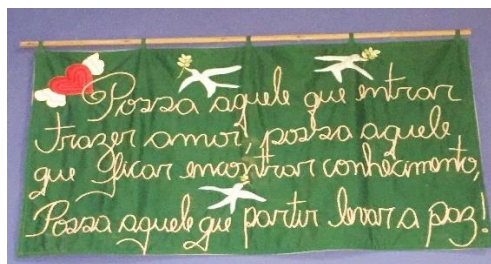 Possa aquele que entrar
trazer amor, possa aquele
que ficar encontrar conhecimento,
Possa aquele que partir levar a paz!